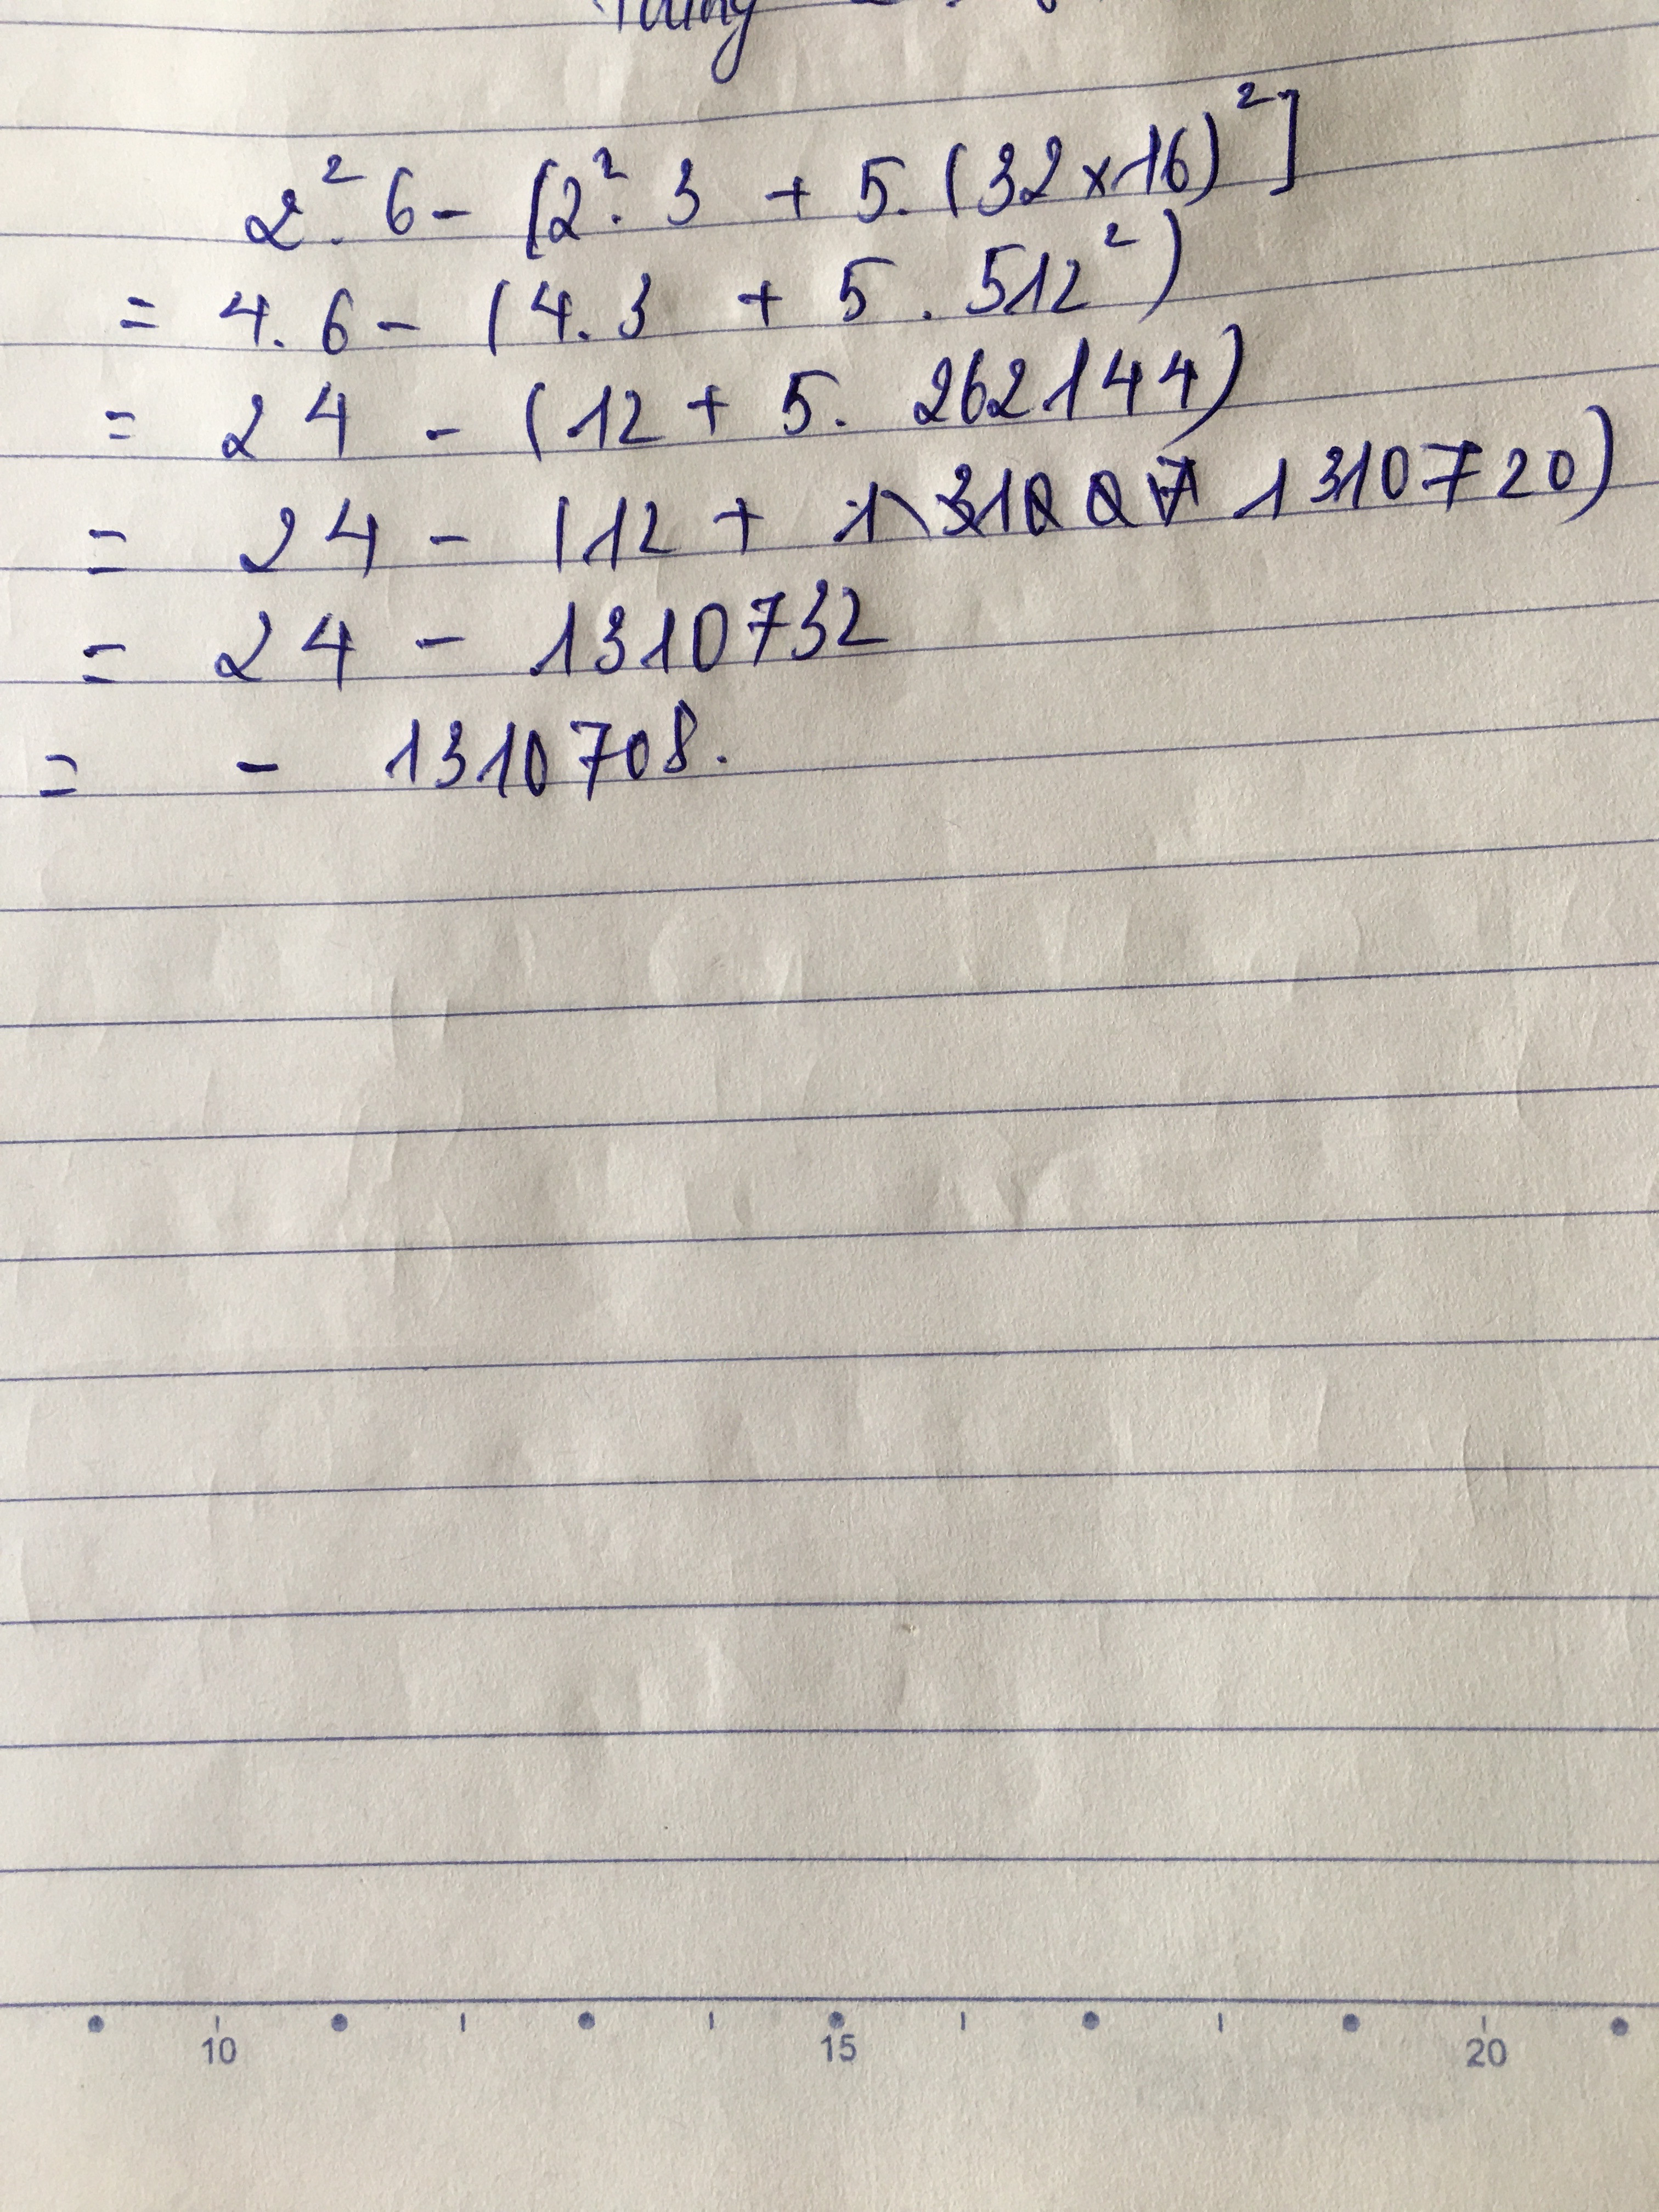 2². 6 - [2². 3 + 5. (32 × 16)²]
= 4. 6 - (4. 3 + 5 . 512²)
= 24 - (12 + 5. 262144)
= 24 - (12 + 1310720)
= 24 - 1310732
= - 1310708.
10 15 20